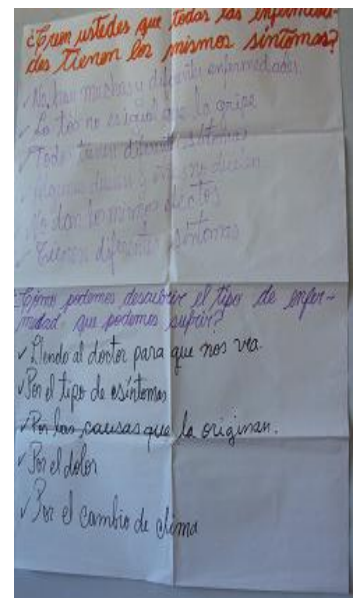 ¿Creen ustedes que todas las enfermeda-
des tienen los mismos síntomas?
✓ No, hay muchas y diferentes enfermedades.
✓ La tos no es igual que la gripe
✓ Todos tienen diferentes síntomas
✓ Algunos duelen y otros no duelen
✓ No dan los mismos efectos
✓ Tienen diferentes síntomas
¿Cómo podemos descubrir el tipo de enfer-
medad que podemos sufrir?
✓ Llendo al doctor para que nos vea.
✓ Por el tipo de síntomas
✓ Por las causas que la originan.
✓ Por el dolor
✓ Por el cambio de clima